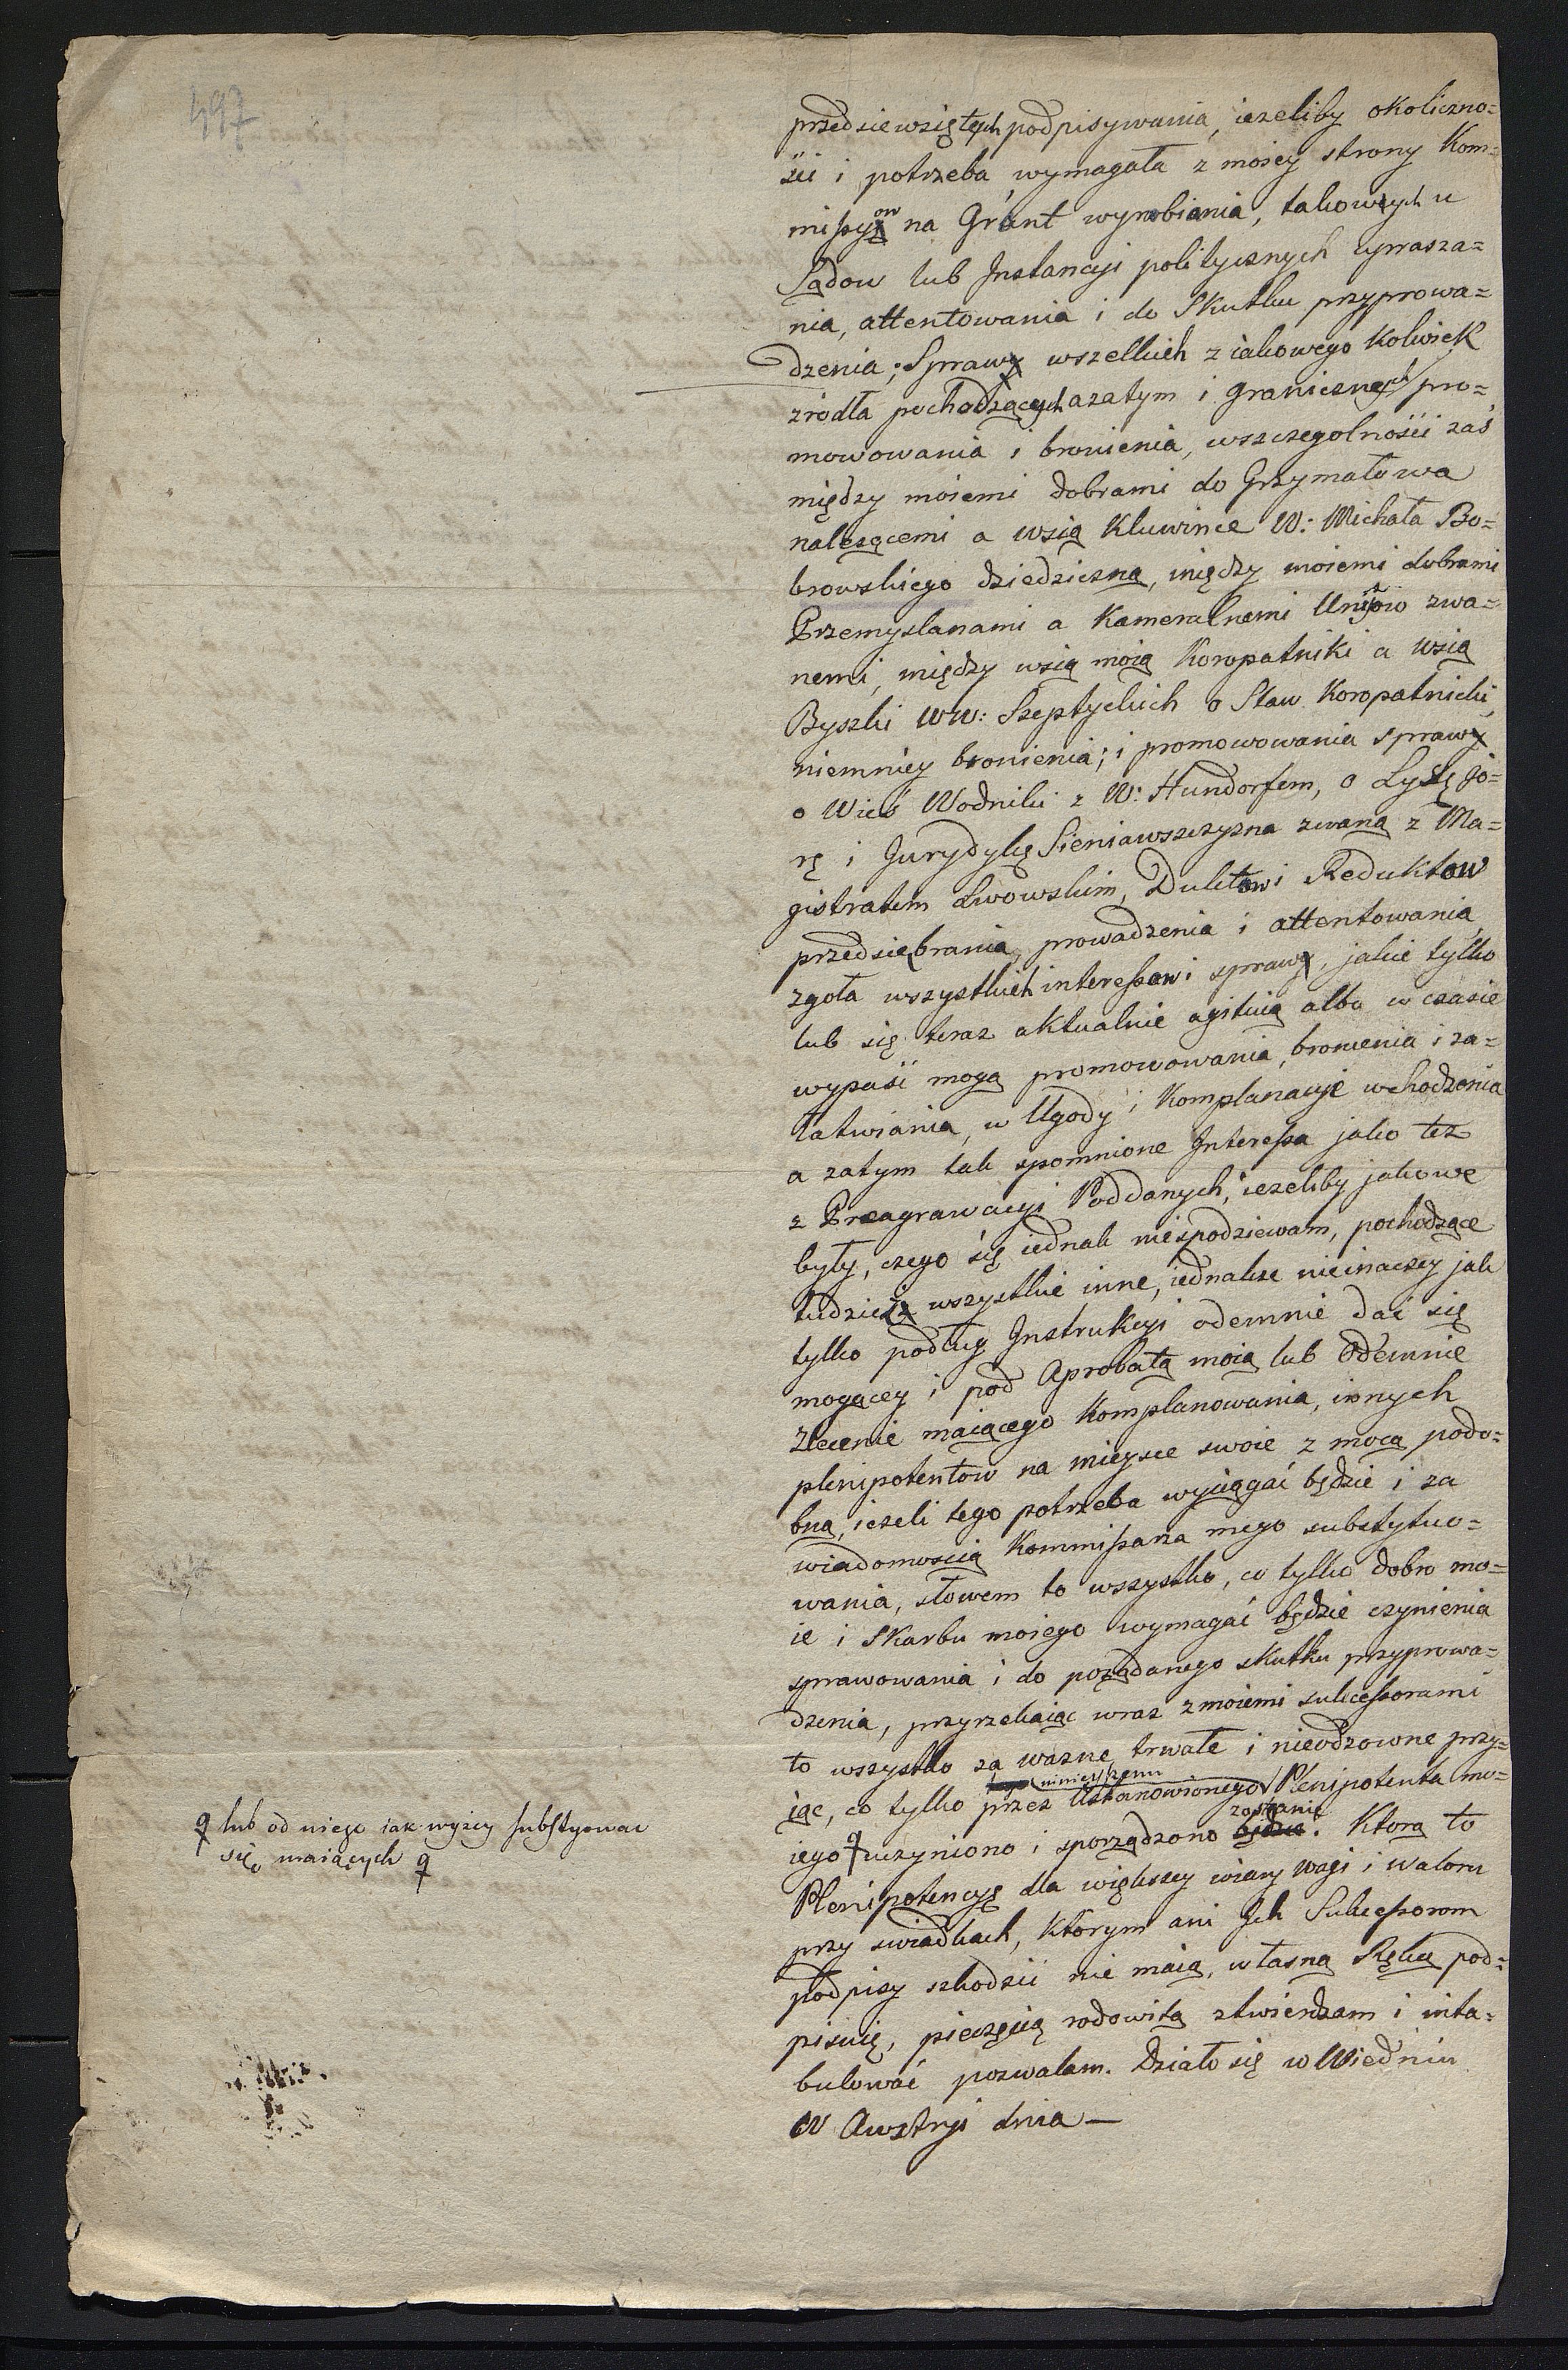 497
przedsiewziętych podpisywania, iezeliby okoliczno=
ści i potrzeba wymagała z moiey strony Kom=
missyow na Grunt wyrobiania, takowych u
Sądow lub Instancyi politycznych uprasza=
nia, attentowania i do Skutku przyprowa=
dzenia; Spraw wszelkich z iakowego kolwiek
zrodła pochodzących a zatym i granicznych pro=
mowowania i bronienia, wszczegolności zaś
między moiemi dobrami do Grzymałowa
nalezącemi a wsią Kluwince W: Michała Bo=
browskiego dziedziczną, między moiemi dobrami
Przemyslanami a Kameralnemi Uniow zwa=
nemi, między wsią moią Koropatniki a wsią
Byszki WW: Szeptyckich o Staw Koropatnicki,
niemniey bronienia; i promowowania spraw
o Wieś Wodniki z W: Hundorfem, o Lysę Go=
rę i Jurydykę Sieniawszczyzna zwaną z Ma=
gistratem Lwowskim, Dukltow i Reduktow
przedsiębrania, prowadzenia i attentowania,
zgoła wszystkich interessow i spraw, jakie tylko
lub się teraz aktualnie agituią albo w czasie
wypaść mogą promowowania, bronienia i za=
łatwiania, w Ugody i Komplanacyje wchodzenia
a zatym tak spomnione Interessa jako tez
z Preagrawacyi Poddanych, iezeliby jakowe
były, czego się iednak niespodziewam, pochodzące
tudziesz wszystkie inne, iednakze nieinaczey jak
tylko podług Instrukcyi odemnie dać się
mogącey i pod Aprobatą moią lub Odemnie
Zlecenie maiącego Komplanowania, innych
plenipotentow na mieysce swoie z mocą podo=
bną, iezeli tego potrzeba wyciągać będzie i za
wiadomością Kommissarza mego substytuo=
wania, słowem to wszystko, co tylko dobro mo=
ie i Skarbu moiego wymagać będzie czynienia
sprawowania i do pożądanego skutku przyprowa=
dzenia, przyrzekaiąc wraz z moiemi sukcessorami
to wszystko za wazne, trwałe i nieodzowne przy=
iąc, co tylko przez ninieyszem Ustanowionego Plenipotenta mo=
iego ♀ uczyniono i sporządzono będzie zostanie. Ktorą to
♀ lub od niego iak wyżey substytowac
się maiących ♀
Plenipotencyę dla większey wiary wagi i waloru
przy swiadkach, ktorym ani Ich Sukcessorom
podpisy szkodzić nie maią, własną Ręką pod=
pisuię, pieczęcią rodowitą ztwierdzam i inta=
bulować pozwalam. Działo się w Wiedniu
W Awstryi dnia —